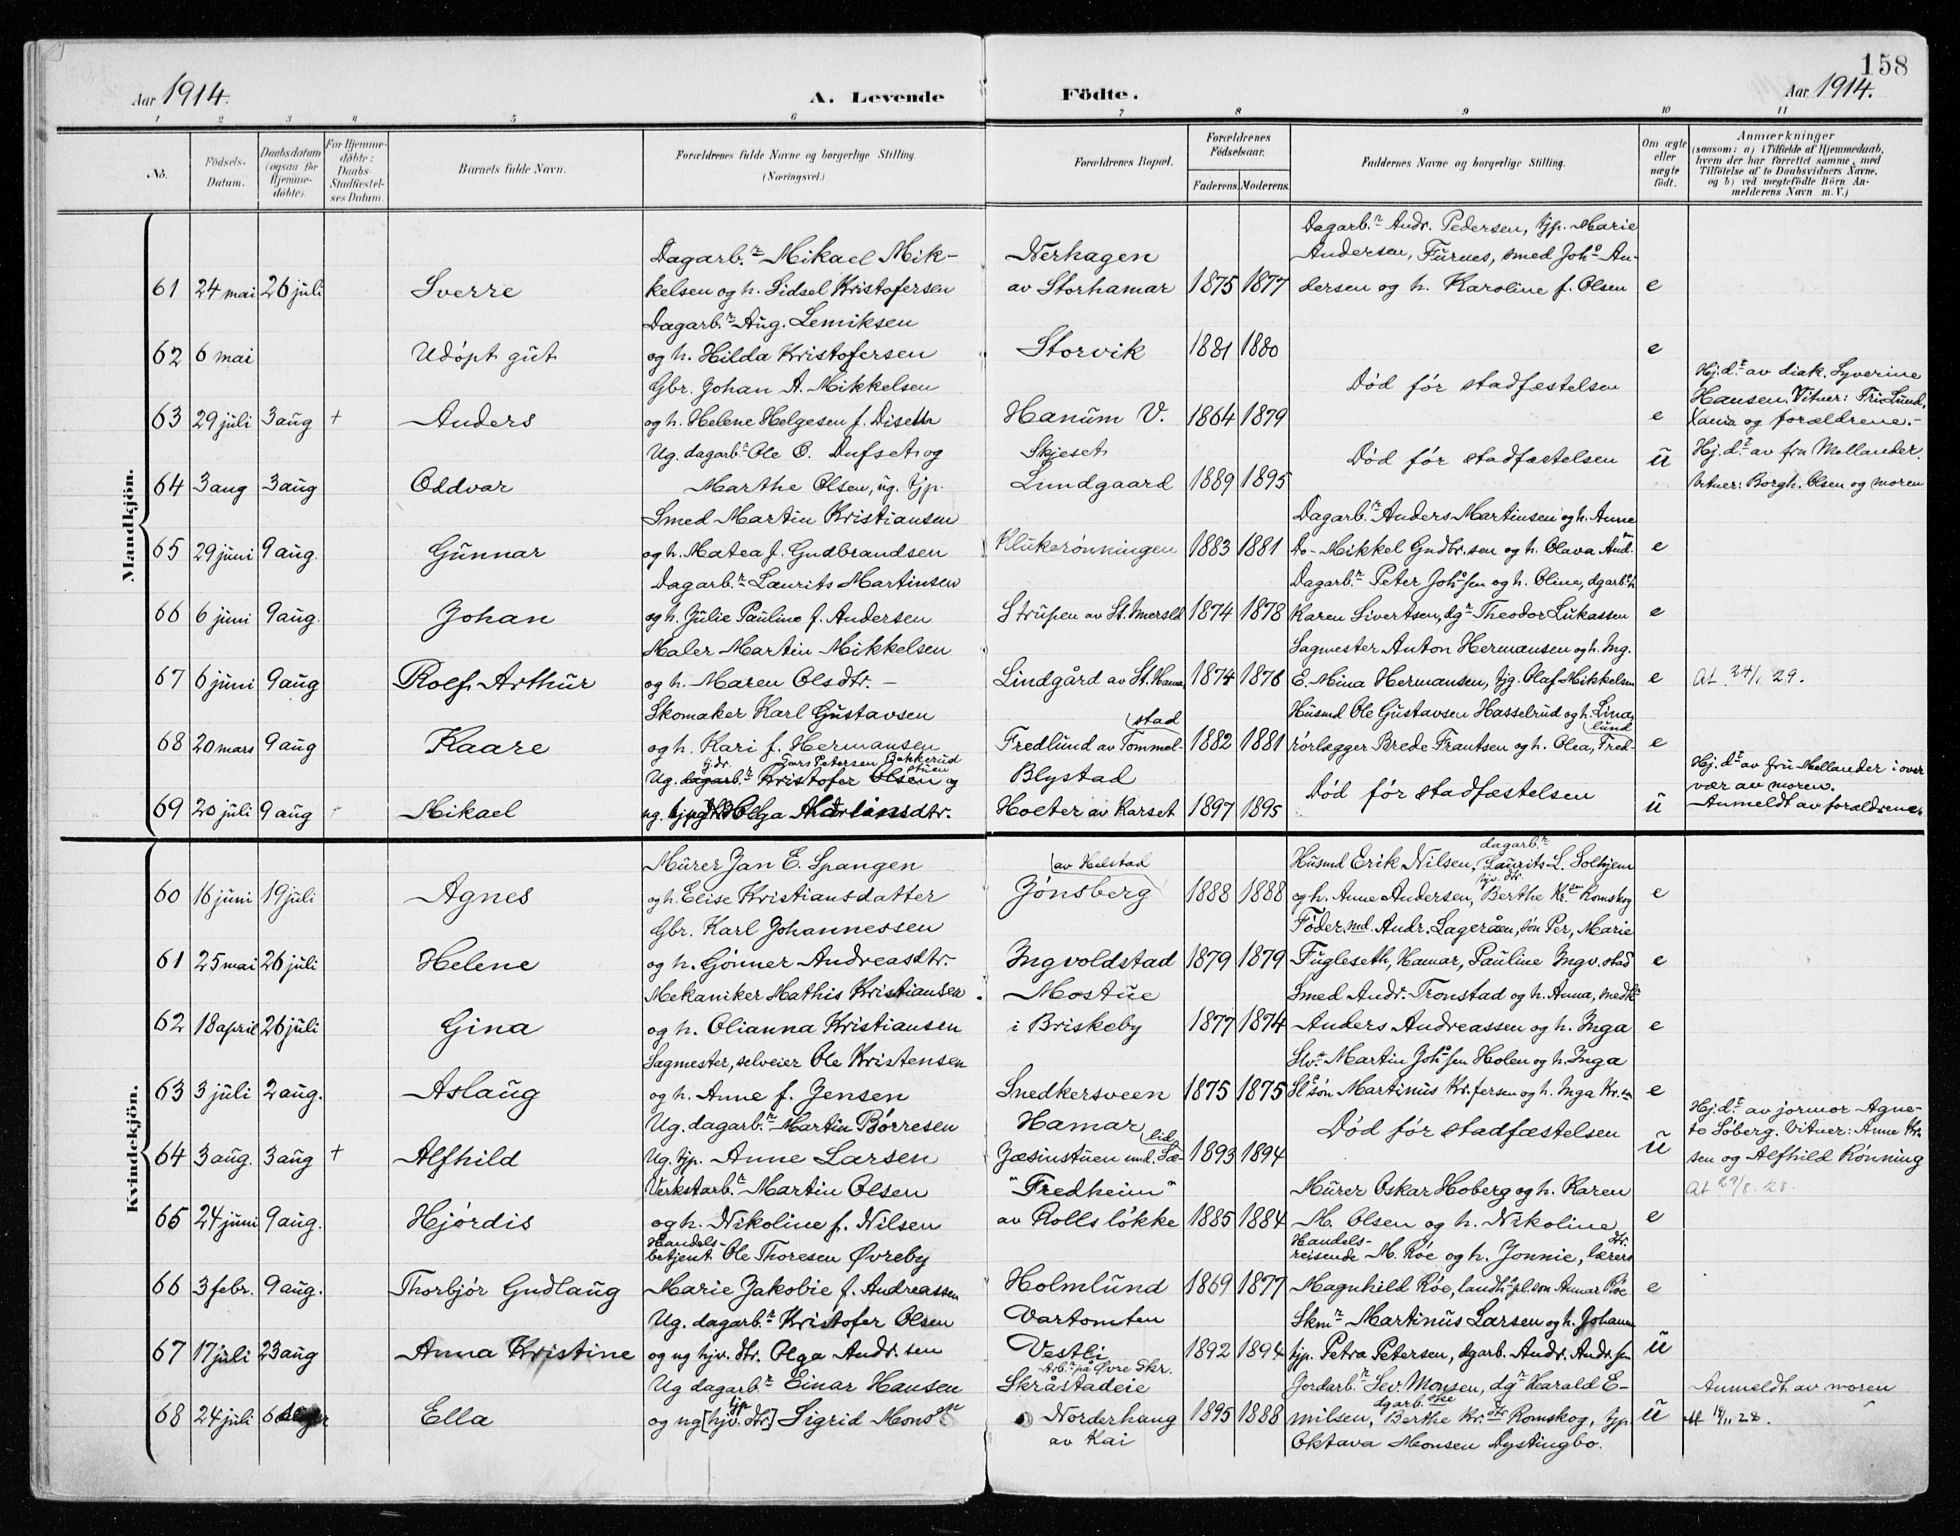 158
Aar 1914. A. Levende Födte. Aar 1914.
1 2 3 4 5 6 7 8 9 10 11
No. Födsels-Datum. Daabsdatum (ogsaa for Hjemme-döbte). For Hjemme-döbte: Daabs-Stadfæstel-ses Datum Barnets fulde Navn. Forældrenes fulde Navne og borgerlige Stilling. (Næringsvei.) Forældrenes Bopæl. Forældrenes Födselsaar. Faderens. Moderens. Faddernes Navne og borgerlige Stilling. Om ægte eller uægte födt. Anmærkninger (saasom: a) i Tilfælde af Hjemmedaab, hvem der har forrettet samme, med Tilföielse af to Daabsvidners Navne, og b) ved uægtefödte Börn An-melderens Navn m. V.)
Mandkjön.
Dagarb.r Andr. Pedersen, tjp. Marie
Dagarb.r Mikael Mik- Nerhagen Andersen, Furnes, smed Joh.s An-
61 24 mai 26 juli Sverre kelsen og h. Sidsel Kristofersen av Storhamar 1875 1877 dersen og h. Karoline f. Olsen e
Dagarb.r Aug. Lemiksen
62 6 mai Udøpt gut og h. Hilda Kristofersen Storvik 1881 1880 e
Gbr. Johan A. Mikkelsen Død før stadfæstelsen Hj.d.t av diak. Syverine
63 29 juli 3 aug + Anders og h. Helene Helgesen f. Diseth Hanum V. 1864 1879 e Hansen. Vitner: Lund,
og forældrene.-
Ug. dagarb.r Ole O. Dufset og Skjeset Død før stadfæstelsen Hj.d.t av fru Mellander.
64 3 aug 3 aug Oddvar Marthe Olsen, ug. tjp. Lundgaard 1889 1895 u Vitner: Borgh. Olsen og moren
Smed Martin Kristiansen Dagarb.r Anders Martinsen og h. Anne
65 29 juni 9 aug. Gunnar og h. Matea f. Gudbrandsen Klukerønningen 1883 1881 Do- Mikkel Gudbr.sen og h. Olava And. e
Dagarb.r Laurits Martinsen Dagarb.r Peter Joh.sen og h. Oline, dgarb.
66 6 juni 9 aug. Johan og h. Julie Pauline f. Andersen Strupen av St. 1874 1878 Karen Sivertsen, dg.r Theodor Lukassen e
Maler Martin Mikkelsen Sagmester Anton Hermansen og h. Ing.
67 6 juni 9 aug Rolf Arthur og h. Maren Olsdtr. - Lindgård av St. Hamar 1874 1876 E. Mina Hermansen, tjg. Olaf Mikkelsen e At. 24/1 29.
Skomaker Karl Gustavsen stad Husmd Ole Gustavsen Hasselrud og h. Lina,
68 20 mars 9 aug Kaare og h. Kari f. Hermansen Fredlund av Tommel- 1882 1881 rørlegger Brede Frantsen og h. Olea, Fred-lund e
tj.dr. Lars Petersen Bakkerudstuen
Ug. dagarb.r Kristofer Olsen og Blystad Død før stadfæstelsen Hj.d.t av fru Mellander i over
vær av moren.
69 20 juli 9 aug + Mikael ug. Olga Martinsdtr. Holter av Karset 1897 1895 u Anmeldt av forældrene.
Kvindekjön.
Murer Jan E. Spangen av Helstad Husmd Erik Nilsen, dagarb.r Laurits L. Solhjem
60 16 juni 19 juli Agnes og h. Elise Kristiansdatter Jønsberg 1888 1888 og h. Anne Andersen, hjv. dtr. Berthe Kr. Romskog e
Gbr. Karl Johannessen Føder.md. Andr. Lageråen, søn Per, Marie
61 25 mai 26 juli Helene og h. Gønner Andreasdtr. Ingvoldstad 1879 1879 Fugleseth, Hamar, Pauline Ingv.stad e
Mekaniker Mathis Kristiansen. Mostue Smed Andr. Tronstad og h. Anna, smed
62 18 april 26 juli Gina og h. Olianna Kristiansen i Briskeby 1877 1874 Anders Andreassen og h. Inga e
Sagmester, selveier Ole Kristensen Slv.r Martin Joh.sen Holen og h. Inga
63 3 juli 2 aug. Aslaug og h. Anne f. Jensen Snedkersveen 1875 1875 søn Martinus Kr.fersen og h. Inga Kr.sen e
Ug. dagarb.r Martin Børresen Hamar Død før stadfæstelsen Hj.d.t av jormor Agne-
64 3 aug. 3 aug + Alfhild Ug. tjp. Anne Larsen Jæsinstuen und. Sæ-lid 1893 1894 u te Søberg. Vitner: Anne Kr.
sen og Alfhild Rønning
Verkstarb.r Martin Olsen "Fredheim" Murer Oskar Hoberg og h. Karen At 29/8 28.
65 24 juni 9 aug. Hjørdis og h. Nikoline f. Nilsen av Rollsløkke 1885 1884 M. Olsen og h. Nikoline e
Handels-betjent Ole Thoresen Øvreby Handels-reisende M. Röe og h. Jonnie, lærers dtr.
66 3 febr. 9 aug. Thorbjör Gudlaug Marie Jakobie f. Andreassen Holmlund 1869 1877 Magnhild Röe, søn Annar Röe e
Ug. dagarb.r Kristofer Olsen Vartomten Skm.r Martinus Larsen og h. Johanne
67 17 juli 23 aug Anna Kristine og ug hjv. dtr. Olga Andr.sen Vestli 1892 1894 tjp. Petra Petersen, dgarb. Andr. Andr.sen u
Arb.r på Øvre Skr.
Ug dagarb.r Einar Hansen Skråstadeie Jordarb.r Sev. Monsen, dg.r Harald E- Anmeldt av moren
68 24 juli 6 Ella og ug [hjv. dtr] tjp Sigrid Monsen Norderhaug 1895 1888 milsen, dgarb. Berthe Kr. dtr Romskog, tjp. u At 19/11 28.
av Kai Oktava Monsen Dystingbo.